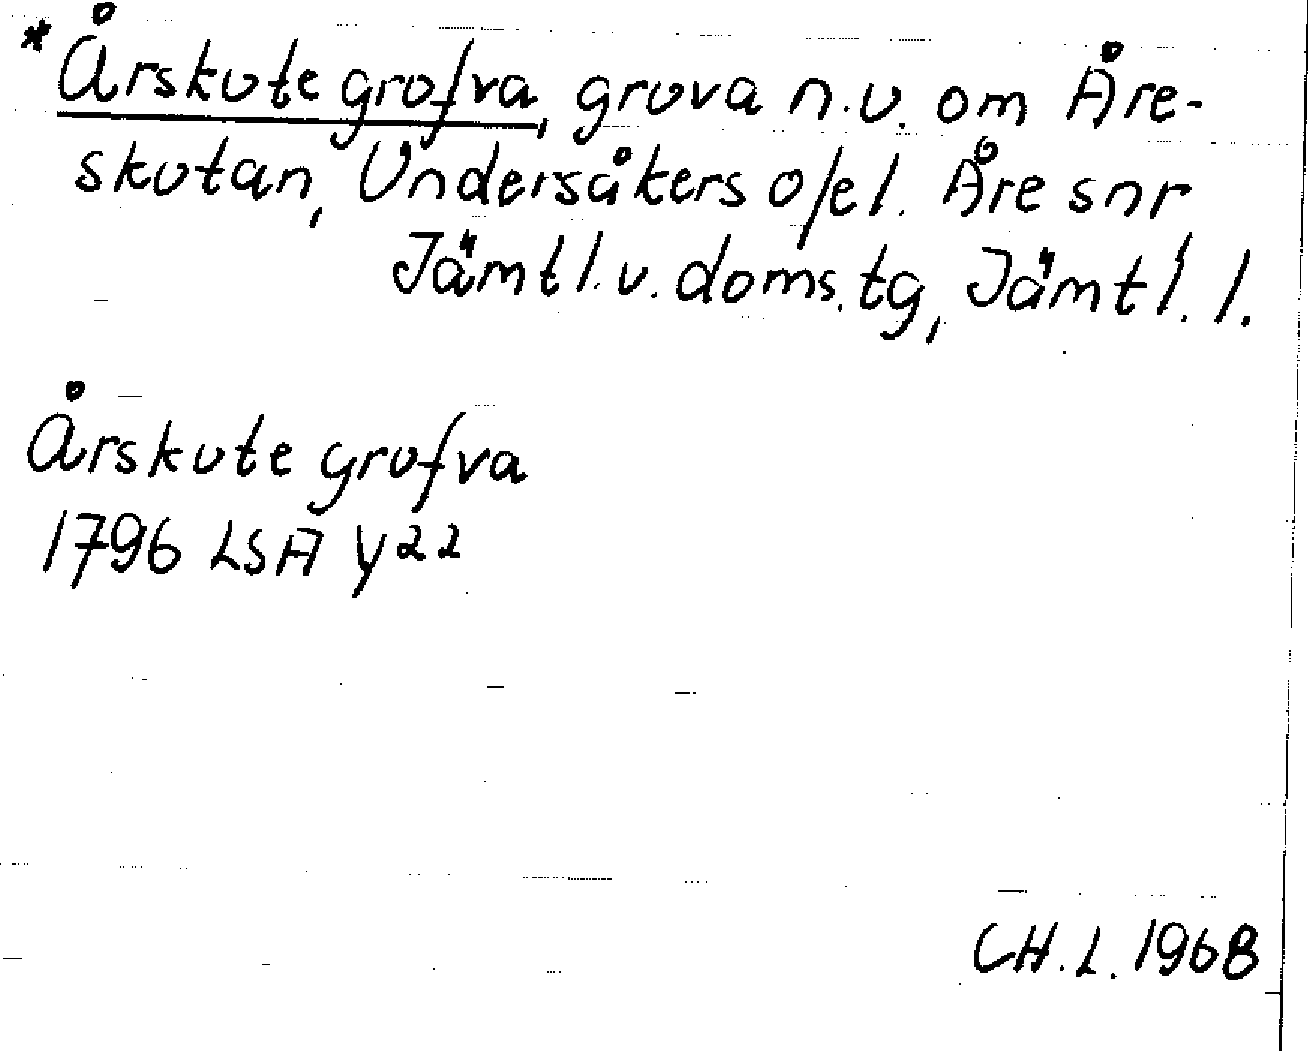 *Årskute grofva, gruva n.v. om Åre-
skutan, Undersåkers o/el. Åre snr
Jämtl.v. doms.tg, Jämtl.l.
Årskute grufva
1796 LSA Y22
CH.L. 1968